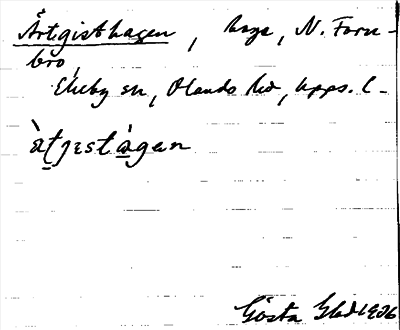 Årtgisthagen, hage, N. Forn-
bro,
Ekeby sn, Olands hd, Upps. l.
àt̲jestà̲gan
Gösta